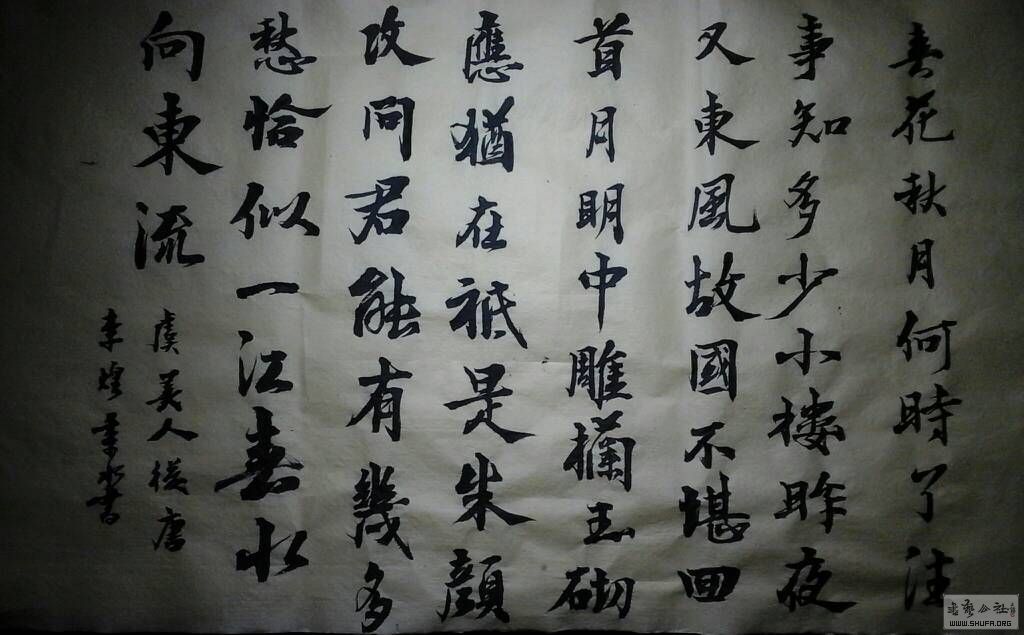 春花秋月何時了往
事知多少小樓昨夜
又東風故國不堪回
首月明中雕欄玉砌
應猶在祗是朱顏
改問君能有幾多
愁恰似一江春水
向東流
虞美人後唐
李煜書
书艺公社
WWW.SHUFA.ORG